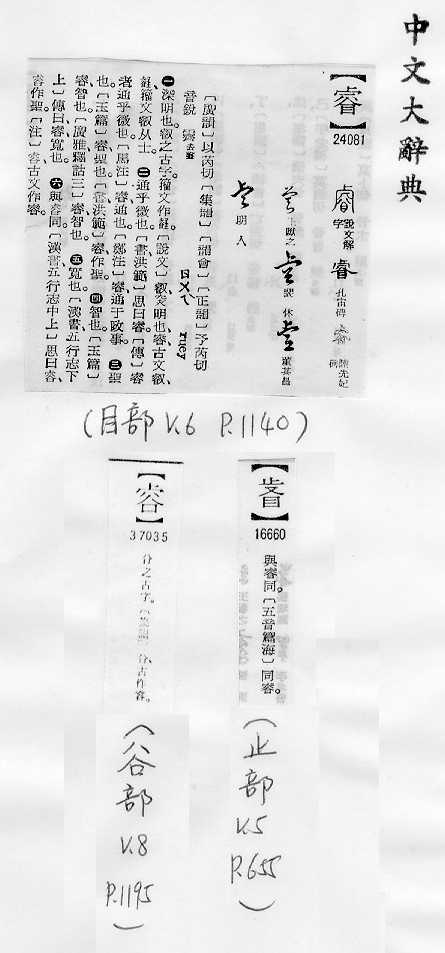 中文大辭典
【睿】
24081
說文解字
睿 孔宙碑
陳先妃碑
王獻之
裴休
董其昌
明人
〔廣韻〕以芮切〔集韻〕〔韻會〕〔正韻〕予芮切
音銳 霽去聲 ㄖㄨㄟˋ ruey
㊀深明也叡之古字籀文作〔說文〕叡、深明也睿古文叡、
籀文叡从土。㊁通乎微也。〔書洪範〕思曰睿〔傳〕睿
者通乎微也〔馬注〕睿通也〔鄭注〕睿通于政事。㊂聖
也〔玉篇〕睿聖也。〔書洪範〕睿作聖。㊃智也〔玉篇〕
睿智也〔廣雅釋詁三〕睿智也。㊄寬也〔漢書五行志下
上〕傳曰睿寬也。㊅與容同〔漢書五行志中上〕思曰容、
容作聖〔注〕容古文作睿。
(目部 V.6 P.1140)
16660
與睿同。〔五音篇海〕同睿。
(止部 V.5 P.655)
37035
谷之古字。谷、古作
(谷部 V.8 P.1195)